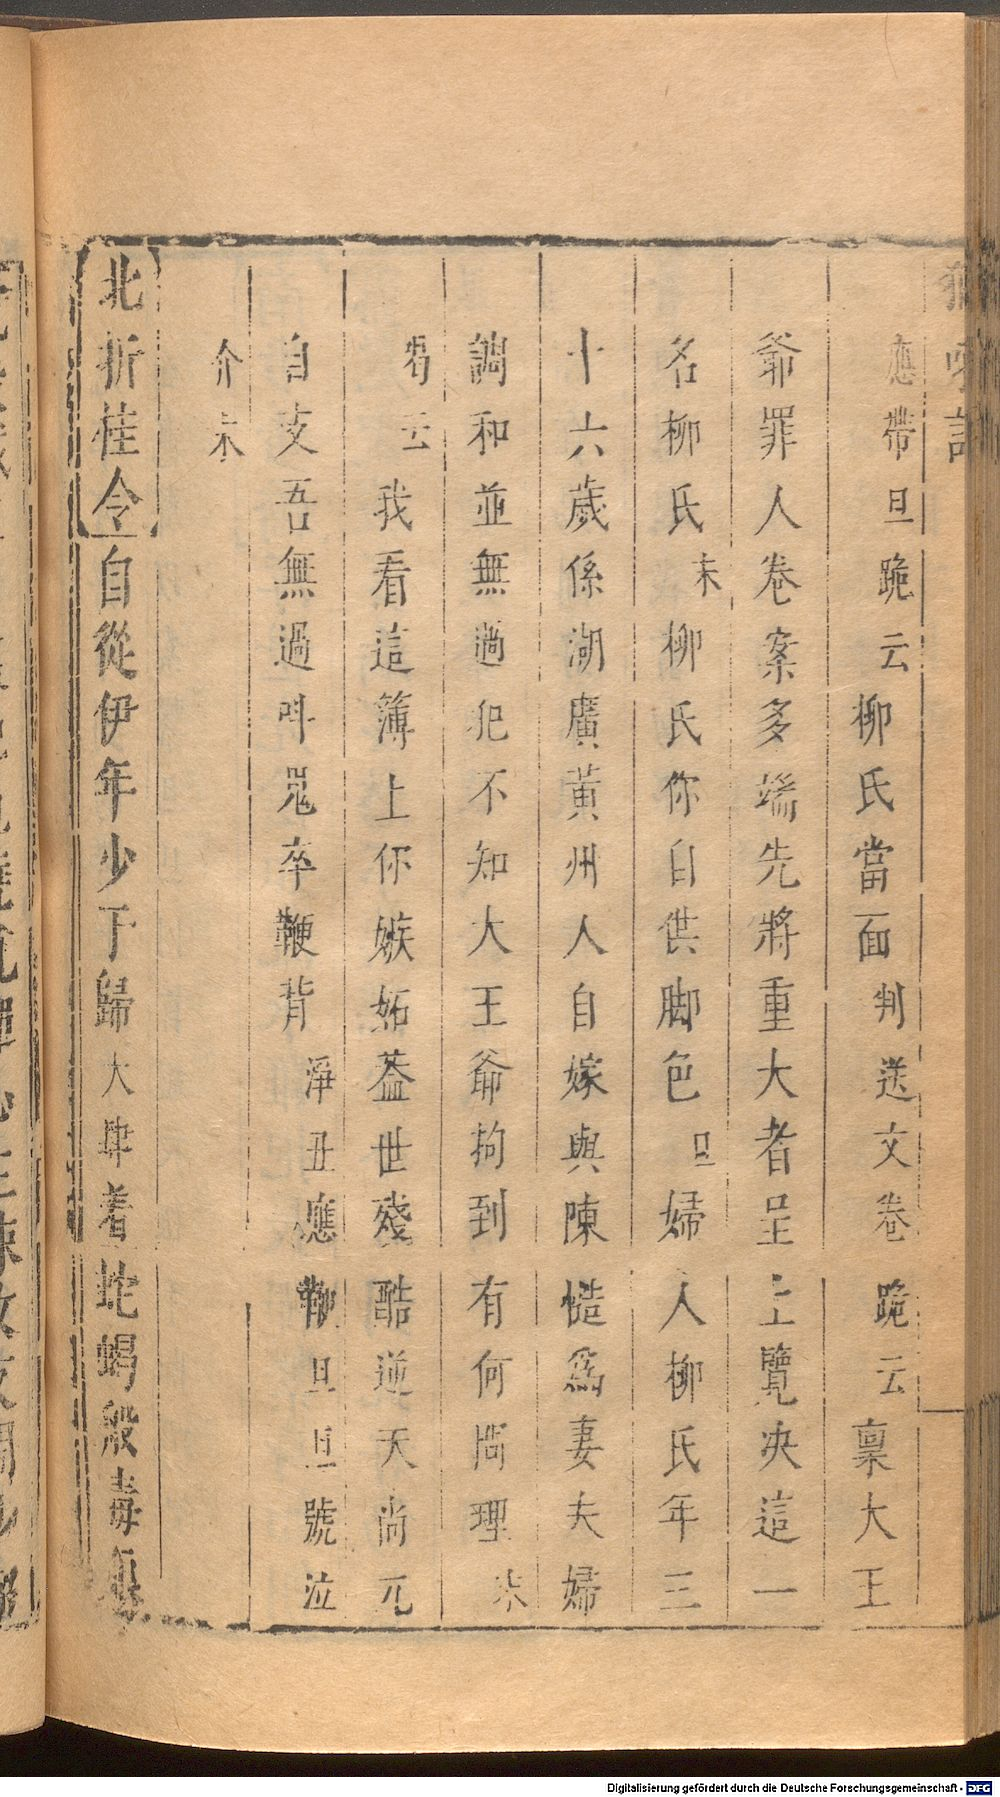 應帶旦跪云柳氏當面判送文卷跪云稟大王
爺罪人卷案多端先將重大者呈上覽决這一
名柳氏末柳氏你自供脚色旦婦人柳氏年三
十六歲係湖廣黃州人自嫁與陳慥爲妻夫婦
調和並無過犯不知大王爺拘到有何問理末
云我看這簿上你嫉妬葢世殘酷逆天尚兀
自支吾無過呌鬼卒鞭背淨丑應鞭旦旦號泣
介末
北折桂令自從伊年少于歸大肆着蛇蝎般毒
Digitalisierung gefördert durch die Deutsche Forschungsgemeinschaft - DFG